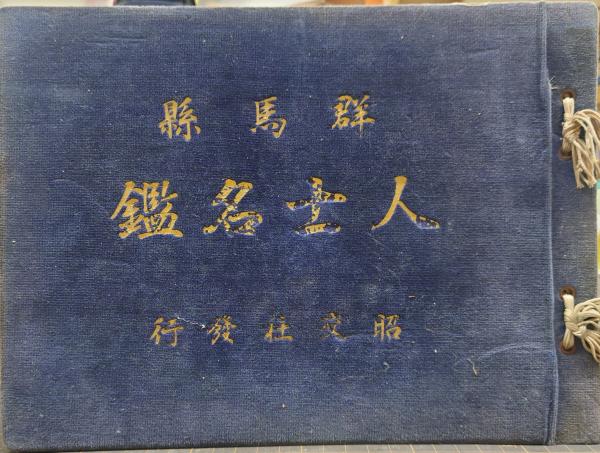 群馬縣
人士名鑑
昭文社發行